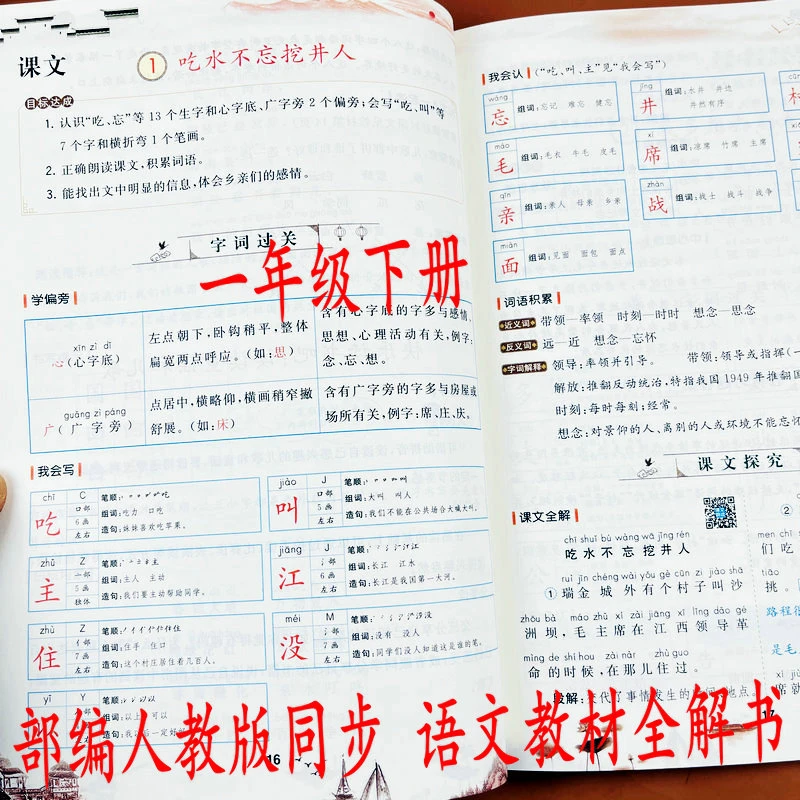 课文
1 吃水不忘挖井人
目标达成
1. 认识“吃、忘”等 13 个生字和心字底、广字旁 2 个偏旁;会写“吃、叫”等
7 个字和横折弯 1 个笔画。
2. 正确朗读课文,积累词语。
3. 能找出文中明显的信息,体会乡亲们的感情。
字词过关
一年级下册
学偏旁
xīn zì dǐ
心(心字底)
左点朝下,卧钩稍平,整体
扁宽两点呼应。(如:思)
含有心字底的字多与感情、
思想、心理活动有关,例字:
念、忘、想。
guǎng zì páng
广(广字旁)
点居中,横略仰,横画稍窄撇
舒展。(如:床)
含有广字旁的字多与房屋或
场所有关,例字:席、庄、庆。
我会写
chī C
吃
口部
6画
左右
笔顺:
组词:吃力 口吃
造句:妹妹喜欢吃苹果。
jiào J
叫
口部
5画
左右
笔顺:
组词:大叫 叫人
造句:我们不能在公共场合大喊大叫。
zhǔ Z
主
丶部
5画
独体
笔顺:
组词:主人 主动
造句:我们要主动帮助同学。
jiāng J
江
氵部
6画
左右
笔顺:
组词:长江 江水
造句:长江是我国第一大河。
zhù Z
住
亻部
7画
左右
笔顺:
组词:住手 住口
造句:这个村庄居住着几百人。
méi M
没
氵部
7画
左右
笔顺:
组词:没有 没人
造句:同学们没人知道这是谁的笔。
yǐ Y
以
笔顺:
组词:以上
16
我会认 (“吃、叫、主”见“我会写”)
wàng
忘
组词:忘记 难忘 健忘
jǐng
井
组词:水井 井边
井然有序
村
máo
毛
组词:毛衣 牛毛 皮毛
xí
席
组词:凉席 竹席 主席
qīn
亲
组词:亲人 母亲 乡亲
zhàn
战
组词:战士 战斗 战争
miàn
面
组词:见面 面包 面点
词语积累
近义词 带领—率领 时刻—时时 想念—思念
反义词 远—近 想念—忘怀
字词解释 领导:率领并引导。 带领:领导或指挥(一
解放:推翻反动统治,特指我国 1949 年推翻国
时刻:每时每刻;经常。
想念:对景仰的人、离别的人或环境不能忘怀
课文探究
课文全解
chī shuǐ bú wàng wā jǐng rén
吃水不忘挖井人
ruì jīn chéng wài yǒu gè cūn zi jiào shā
①瑞金城外有个村子叫沙
zhōu bà máo zhǔ xí zài jiāng xī lǐng dǎo gé
洲坝,毛主席在江西领导革
mìng de shí hou zài nàr zhù guo
命的时候,在那儿住过。
段解:交代了事情发生的时间、地点。
②
们吃
挑。
路程很
是毛
席就
17
部编人教版同步 语文教材全解书